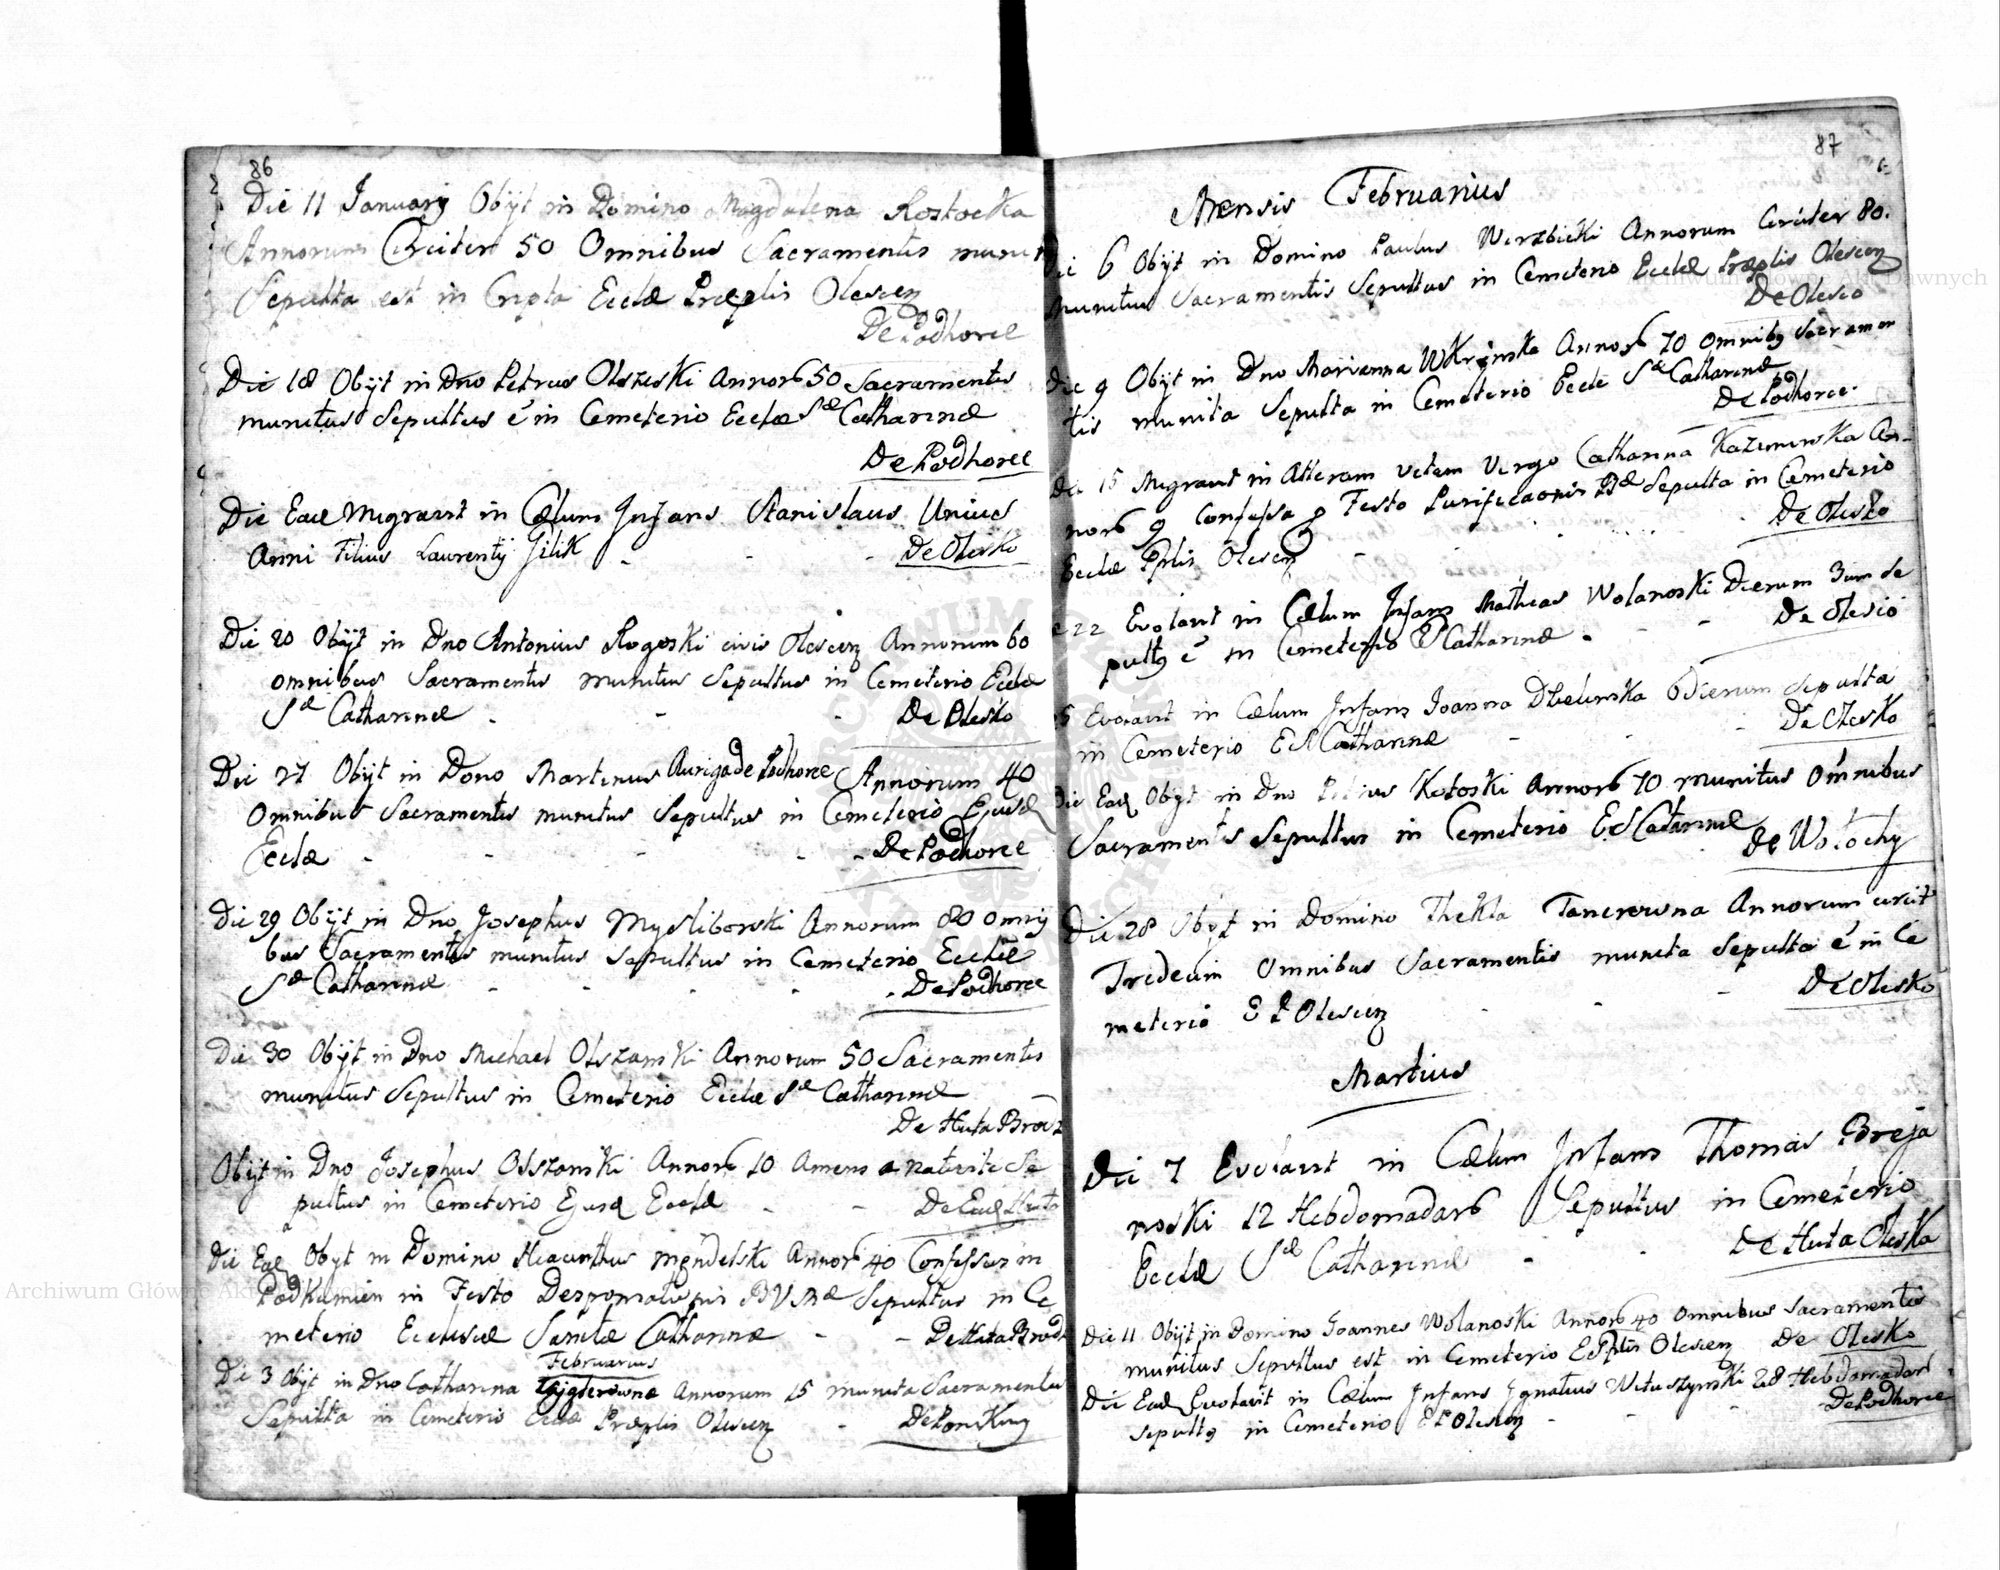 86
Die 11 Januarij Obijt in Domino Magdalena Rostocka
Annorum Circiter 50 Omnibus Sacramentis munita
Sepulta est in Cripta Eccłæ Præplis Olescen
De Podhorce
Die 18 Obijt in Dno Petrus Olszeski Annor 50 Sacramentis
munitus Sepultus ē in Cemeterio Eccłæ Sæ Catharinæ
De Podhorce
Die Ead Migravit in Cælum Infans Stanislaus Unius
Anni Filius Laurentij Jilik - - - De Olesko
Die 20 Obijt in Dno Antonius Rogoski civis Olescen Annorum 60
omnibus Sacramentis munitus Sepultus in Cemeterio Eccłæ
Sæ Catharinæ - - - De Olesko
Die 27 Obijt in Dono Martinus Auriga de Podhorce Annorum 40
Omnibus Sacramentis munitus Sepultus in Cemeterio Ejusd
Eccłæ - - - - - De Podhorce
Die 29 Obijt in Dno Josephus Mysliborski Annorum 80 omni
bus Sacramentis munitus sepultus in Cemeterio Eccłæ
Sæ Catharinæ - - - - - De Podhorce
Die 30 Obijt in Dno Michael Olszanski Annorum 50 Sacramentis
munitus Sepultus in Cemeterio Eccłæ Sæ Catharinæ
De Huta Brod
Obijt in Dno Josephus Olszanski Annor 10 Amens a nativite Se
pultus in Cemeterio Ejusd Eccłæ - - De Ead Huta
Die Ead Obyt in Domino Hiacinthus Mendelski Annor 40 Confessus in
Podkamien in Festo Desponsationis BVMæ Sepultus in Ce
meterio Ecclesiæ Sanctæ Catharinæ - - De Huta Brod
Februarius
Die 3 Obijt in Dno Catharina Annorum 15 munita Sacramentis
Sepulta in Cemeterio Eccłæ Præplis Olescen - De Ponikwy
87
Mensis Februarius
Die 6 Obijt in Domino Paulus Wirzbicki Annorum Circiter 80.
munitus Sacramentis Sepultus in Cemeterio Eccłæ Præplis Olescen
De Olesio
Die 9 Obijt in Dno Marianna Wkrynska Annor 70 omnibq Sacramen
tis munita Sepulta in Cemeterio Eccłe Sæ Catharinæ
De Podhorce.
Die 15 Migravit in Alteram vitam Virgo Catharina Kazimirska An-
nor 9 Confessa p Festo Purificaonis Bæ Sepulta in Cemeterio
Eccłæ Pplis Olescen - - - De Olesko
e 22 Evolavit in Cælum Infans Mathias Wolanoski Dierum 3um se
pultq ē in Cemeterio E S Catharinæ - - - De Olesio
5 Evolavit in Cælum Infans Joanna Dbelinska 6 Dierum Sepulta
in Cemeterio E S Catharinæ - - - De Olesko
Die Ead Obyt in Dno Kotoski Annor 70 munitus Omnibus
Sacramentis Sepultus in Cemeterio E S Catarinæ De Wołochy
Die 28 Obyt in Domino Thekla Tancrowna Annorum circit
Tredecim Omnibus Sacramentis munita Sepulta ē in Ce
meterio E P Olescen - - - De Olesko
Martius
Die 7 Evolavit in Cælum Infans Thomas Breja
noski 12 Hebdomadar Sepultus in Cemeterio
Eccłæ Sæ Catharinæ - - De Huta Oleska
Die 11 Obijt in Domino Joannes Wolanoski Annor 40 Omnibus Sacramentis
munitus Sepultus est in Cemeterio E Pplis Olescen De Olesko
Die Ead Evolavit in Cælum Infans Ignatius Wituszynski 28 Hebdomadar
sepultq in Cemeterio E P Olescen - - - De Podhorce
Archiwum Główne Akt Dawnych